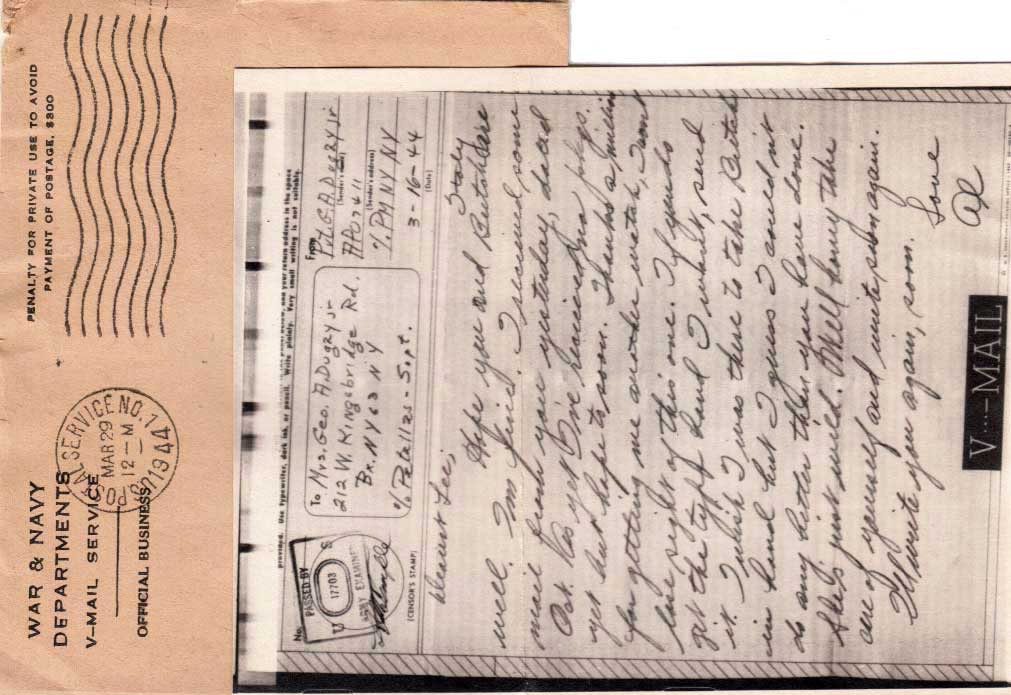 WAR & NAVY
DEPARTMENTS
V-MAIL SERVICE
OFFICIAL BUSINESS
PENALTY FOR PRIVATE USE TO AVOID
PAYMENT OF POSTAGE, $300
U.S. POSTAL SERVICE NO. 1
MAR 29
12-M
1944
provided. Use typewriter, dark ink, or pencil. Write plainly. Very small writing is not suitable.
No.
PASSED BY
U S
17703
ARMY EXAMINER
(CENSOR'S STAMP)
To Mrs. Geo. A. Dugzy jr
212 W. Kingsbridge Rd.
Bx. NY 63 NY
% Patallas - Supt.
From
Pvt. G. A. Dugzy jr
(Sender's name)
APO 7411
(Sender's address)
% PM NY NY
3-16-44
(Date)
Italy
Dearest Lee,
Hope you and Butch are
well. I'm fine. I received some
mail from you yesterday, dated
Oct. As yet I've received no pkgs.
yet but hope to, soon. Thanks a million
for getting me another watch, I won't
lose sight of this one. If you's
get the type band I want, send
it. I wish I was there to take Butch
in hand but I guess I could not
do any better than you have done.
He's just wild. Well honey take
care of yourself and write soon again.
I'll write you again, soon.
Love
Al
V···—MAIL